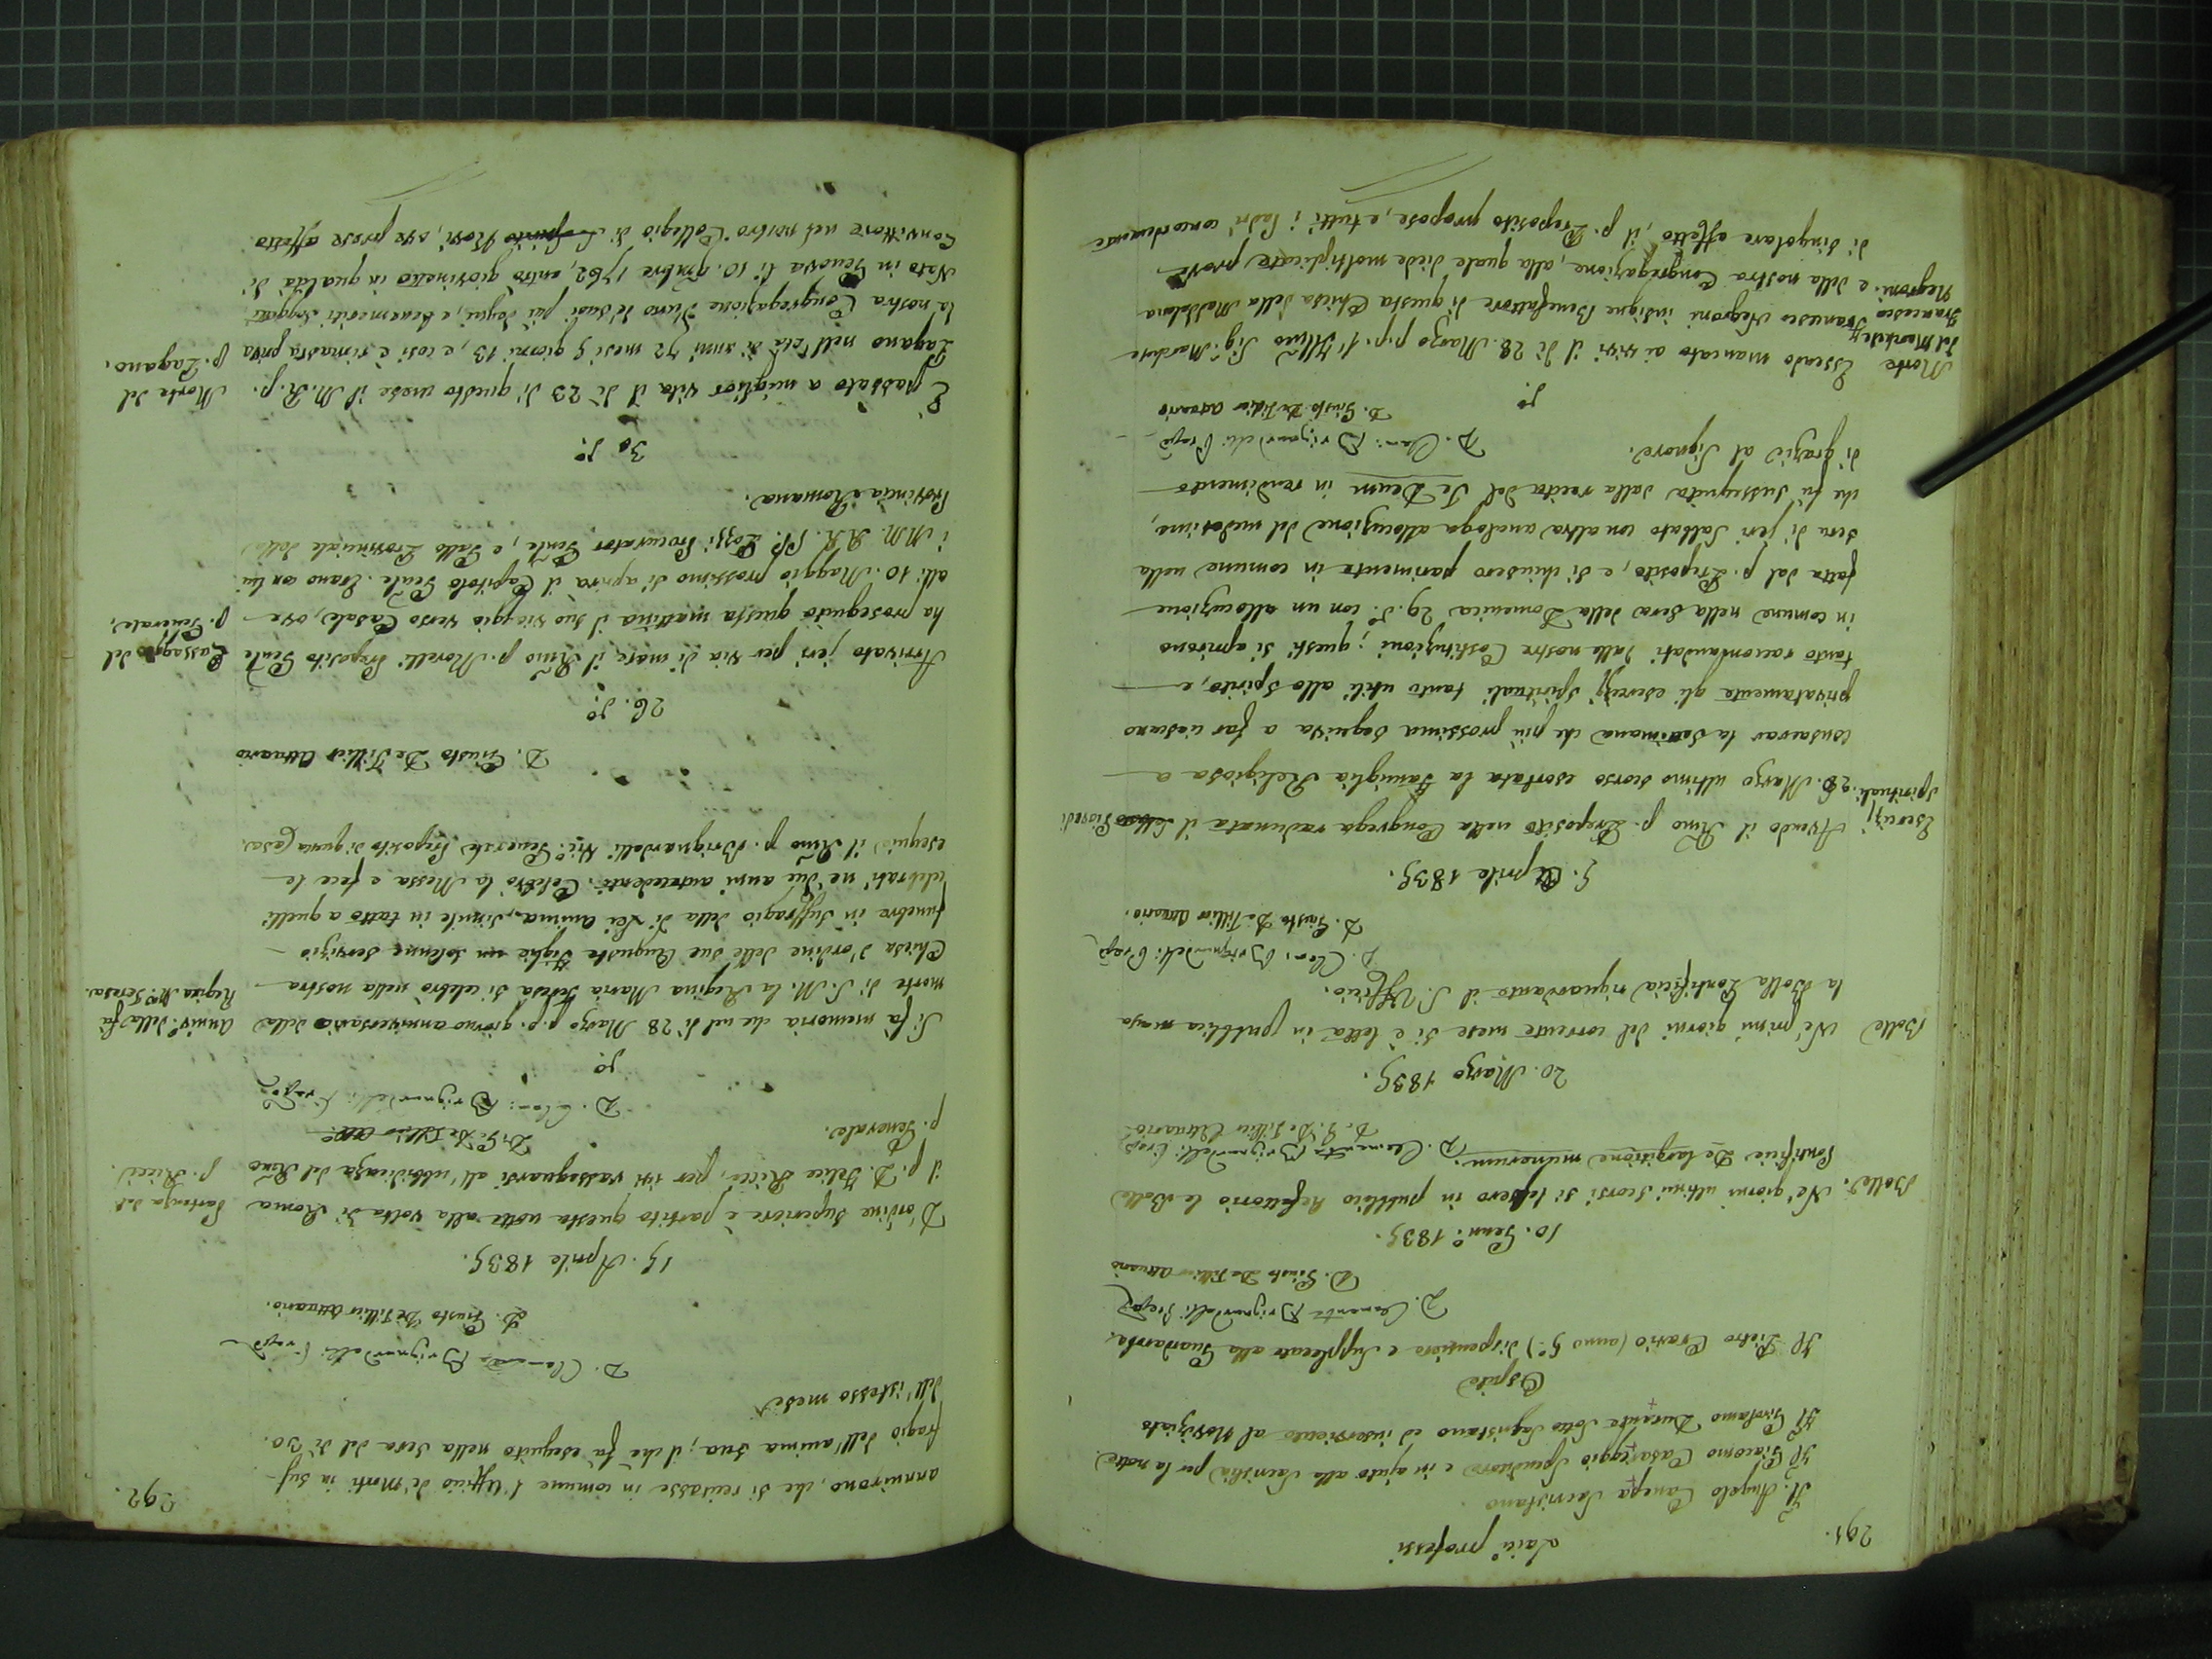 291.
Laici professi
Fl. Angelo Canepa Sacristano.
Fl. Giacomo Casareggio Spenditore e in ajuto alla Sacristia per la notte.
Fl. Girolamo Durante Sotto Sagristano ed inserviente al Noviziato
Ospite
Fl. Pietro Ovario (anno 5°.) dispensiere e Supplente alla Guardaroba.
D. Clemente Brignardelli Prepo.
D. Giusto De Tillier Attuario
10. Genn.° 1835.
Bolle.
Ne' giorni ultimi scorsi si lessero in pubblico Refettorio le Bolle
Pontificie De largitione munerum.
D. Clemente Brignardelli Prepo.
D. G. De Tillier Attuario
20. Marzo 1835.
Bolle
Ne' primi giorni del corrente mese si è letta in pubblica mensa
la Bolla Pontificia riguardante il S. Uffizio.
D. Clem. Brignardelli Prepo.
D. Giusto De Tillier Attuario.
5. Aprile 1835.
Esercizj
Spirituali.
Avendo il Rmo p. Preposito nella Congrega radunata il Giovedì
26. Marzo ultimo scorso esortata la Famiglia Religiosa a
consacrar la Settimana che più prossima seguiva a far ciascuno
privatamente gli esercizj spirituali tanto utili allo Spirito, e
tanto raccomandati dalle nostre Costituzioni; questi si aprirono
in comune nella Sera della Domenica 29. d.° con un allocuzione
fatta dal p. Preposito, e si chiusero parimente in comune nella
sera di jeri Sabbato con altra analoga allocuzione del medesimo,
che fù susseguita dalla recita del Te Deum in rendimento
di grazie al Signore.
D. Clem: Brignardelli Prepo.
D. Giusto De Tillier Attuario
d.°
Morte
del Marchese
Francesco
Negroni.
Essendo mancato ai vivi il dì 28. Marzo p.p. l'Illmo Sig. Marchese
Francesco Negroni insigne Benefattore di questa Chiesa della Maddalena
e della nostra Congregazione, alla quale diede moltiplicate prove
di singolare affetto, il p. Preposito propose, e tutti i Padri concordemente
292.
annuirono, che si recitasse in comune l'Uffizio de' Morti in suf-
fragio dell'anima sua; il che fù eseguito nella Sera del dì 30.
dell'istesso mese
D. Clemente Brignardelli Prepo.
D. Giusto De Tillier Attuario.
15. Aprile 1835.
Partenza del
p. Ricci.
D'ordine Superiore è partito questa notte alla volta di Roma
il p. D. Felice Ricci, per ivi rassegnarsi all'ubbidienza del Rmo
p. Generale.
D. G. De Tillier Att°.
D. Clem: Brignardelli Prepo.
d.°
Anniv.° della fù
Regina M.a Teresa.
Si fà memoria che nel dì 28 Marzo p.p. giorno anniversario della
morte di S. M. la Regina Maria Teresa si celebrò nella nostra
Chiesa d'ordine delle sue Auguste Figlie un solenne servizio
funebre in suffragio della di Lei anima, simile in tutto a quelli
celebrati ne' due anni antecedenti. Celebrò la Messa e fece le
esequie il Rmo p. Brignardelli Vic.° Generale Preposito di questa Casa.
D. Giusto De Tillier Attuario
26. d.°
Passaggio del
p. Generale.
Arrivato jeri per via di mare il Rmo p. Morelli Preposito Genle
ha proseguito questa mattina il suo viaggio verso Casale, ove
alli 10. Maggio prossimo si aprirà il Capitolo Genle. Erano con lui
i MM. RR. PP. Pozzi Procurator Genle, e Gallo Provinciale della
Provincia Romana.
30 d.°
Morte del
p. Pagano.
È passato a miglior vita il dì 23 di questo mese il M. R. p.
Pagano nell'età di anni 72 mesi 5 giorni 13, e così è rimasta priva
la nostra Congregazione d'uno de' suoi più degni, e benemeriti Soggetti.
Nato in Genova li 10. 9mbre 1762, entrò giovinetto in qualità di
Convittore nel nostro Collegio di Novi, ove prese affetto